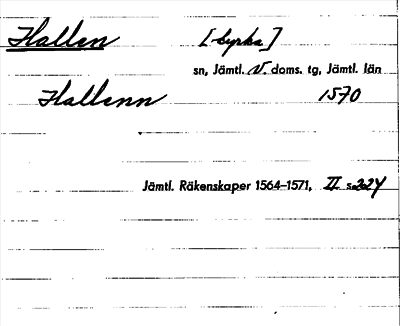 Hallen [byrka]
sn, Jämtl. V. doms. tg, Jämtl. län
Hallenn 1570
Jämtl. Räkenskaper 1564–1571, II s. 224